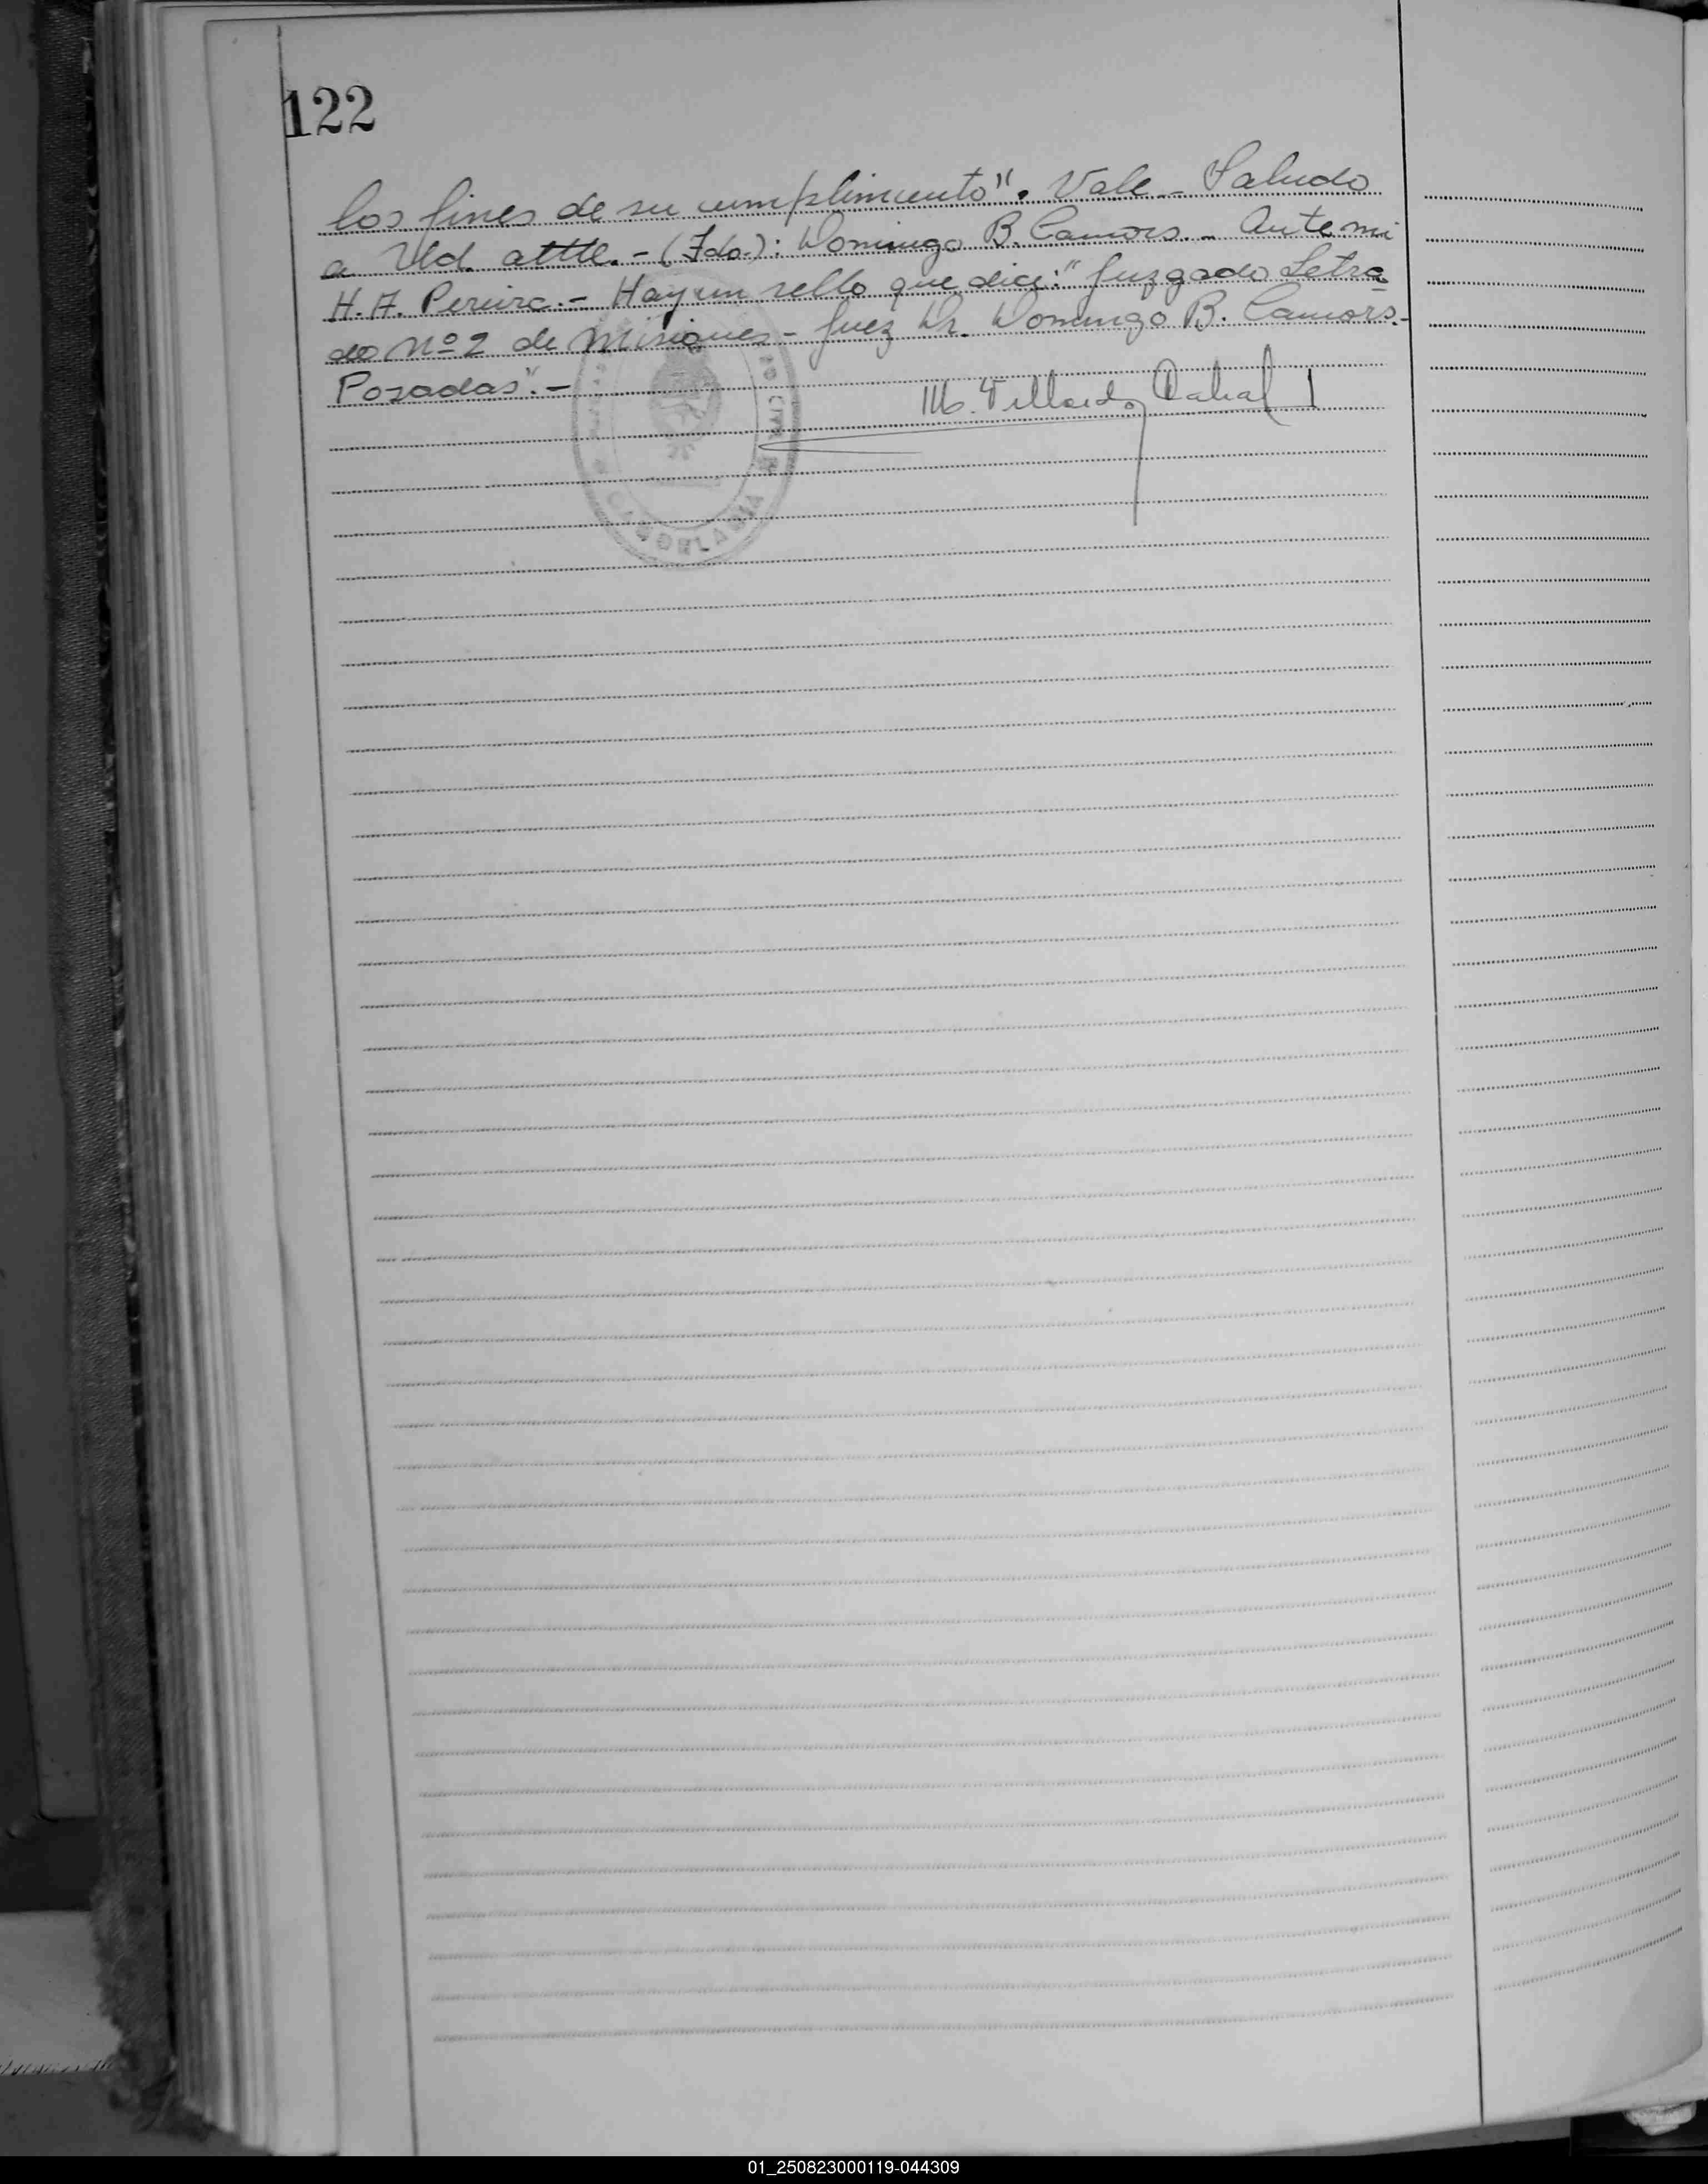 122
los fines de su cumplimiento". Vale.- Saludo
a Ud. attte.- (Fdo.): Domingo B. Camors.- Ante mi
H.A. Pereira.- Hay un sello que dice: "Juzgado Letra
do Nº 2 de Misiones - Juez Dr. Domingo B. Camors.-
Posadas".-
M. Cabral
CANDELARIA
01_250823000119-044309